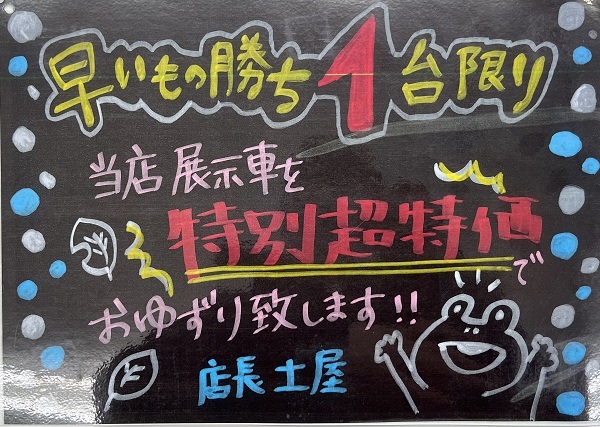 早いもの勝ち1台限り
当店展示車を
特別超特価で
おゆずり致します!!
店長土屋